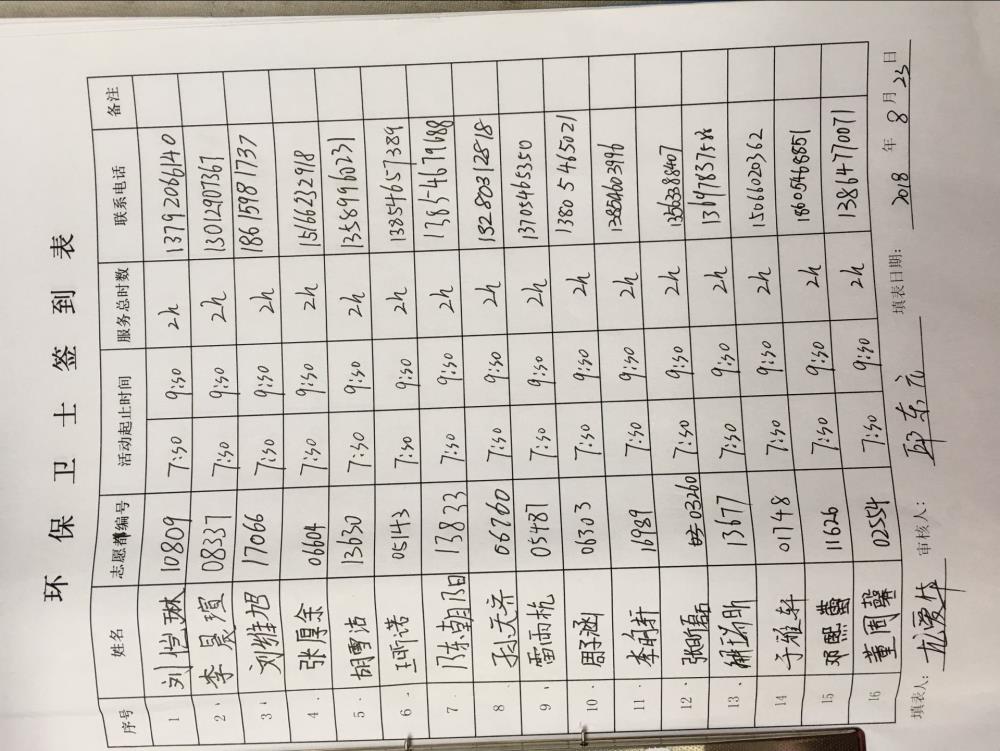 环保卫士签到表
序号 姓名 志愿者编号 活动起止时间 服务总时数 联系电话 备注
1 刘恺琳 10809 7:30 9:30 2h 13792066140
2 李晨瑄 08337 7:30 9:30 2h 13012907367
3 刘雅旭 17066 7:30 9:30 2h 18615981737
4 张厚余 06604 7:30 9:30 2h 15166232918
5 胡雪洁 13630 7:30 9:30 2h 13589960231
6 05143 7:30 9:30 2h 13854657389
7 陈朝阳 13833 7:30 9:30 2h 13854679688
8 孙天齐 06760 7:30 9:30 2h 13280312818
9 雷雨杭 05481 7:30 9:30 2h 13705465350
10 周子涵 06303 7:30 9:30 2h 13805465021
11 李明轩 16989 7:30 9:30 2h 13854603996
12 张昕磊 03260 7:30 9:30 2h 13563388407
13 13677 7:30 9:30 2h
14 于雅轩 01748 7:30 9:30 2h 15066020362
15 邓熙蕾 11626 7:30 9:30 2h 18605468851
16 董周馨 02554 7:30 9:30 2h 13864770071
填表人: 尤爱华 审核人: 邱东元 填表日期: 2018 年 8 月 23 日